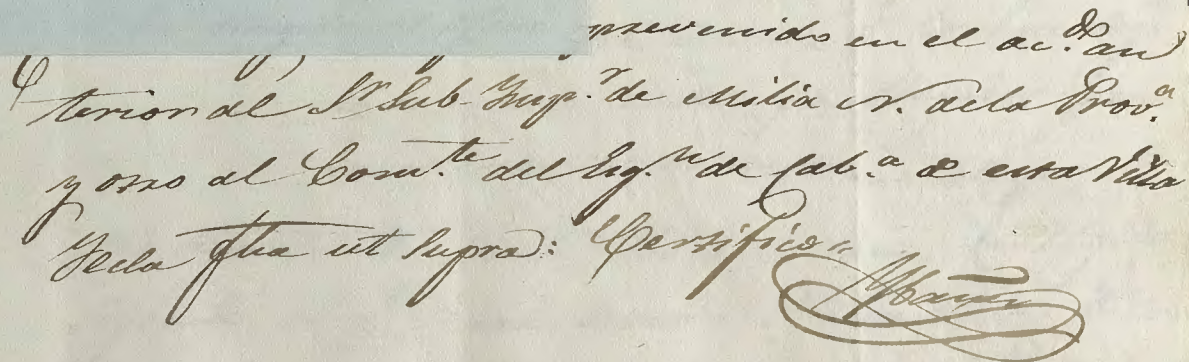 prevenido en el ac.do an
terior al Sr Sub-Insp.r de Milicia N. de la Prov.a
y otro al Com.te del Esq.n de Cab.a de esta Villa
Yecla fha ut supra: Certifico=
Ybañez